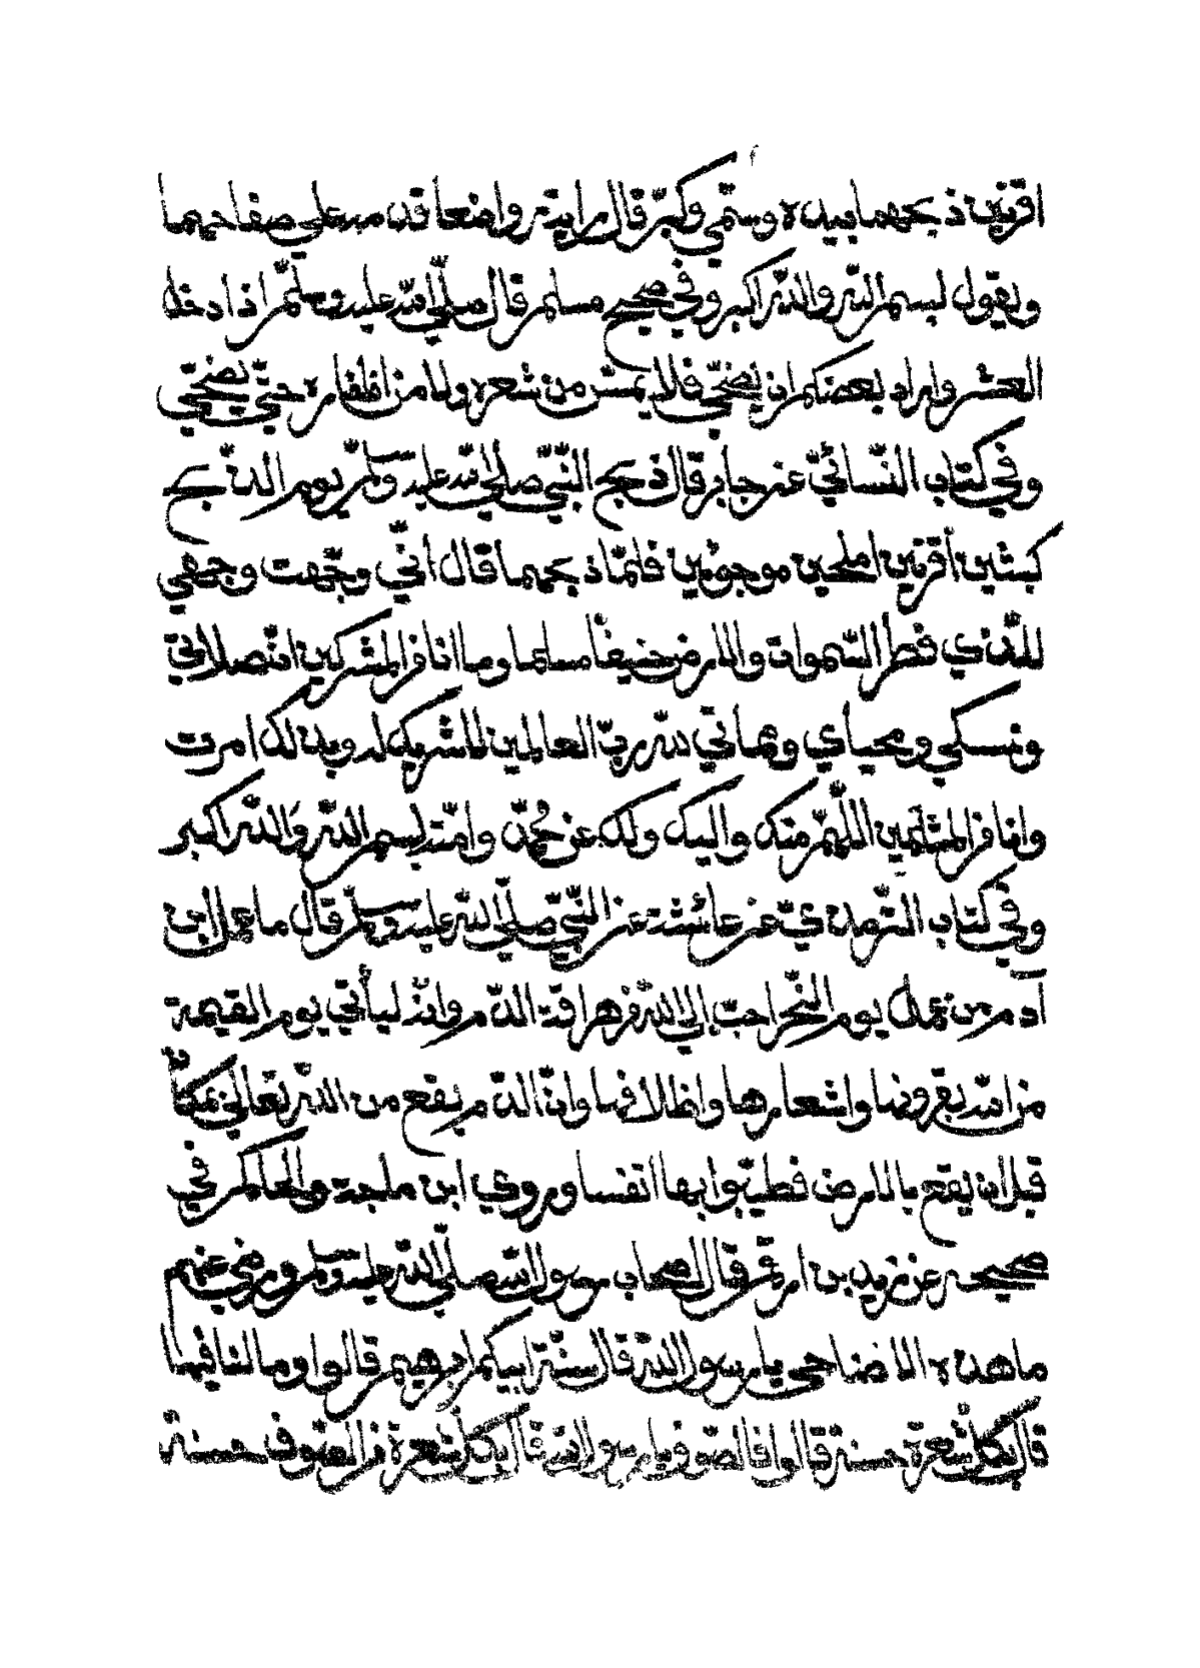 اقرنين ذبحهما بيده وسمّي وكبّر قال رايته واضعا قدمه علي صفاحهما
ويقول بسم اللّه واللّه اكبر وفي صحيح مسلم قال صلّي اللّه عليه وسلّم اذا دخل
العشر واراد بعضكم ان يضحّي فلا يمسّ من شعره ولا من اظفاره حتّي يضحّي
وفي كتاب النّسائيّ عن جابر قال ذبح النّبيّ صلّي اللّه عليه وسلّم يوم الذّبح
كبشين أقرنين املحين موجوئين فلمّا ذبحهما قال أنّي وجّهت وجهي
للّذي فطر السّموات والارض حنيفاً مسلما وما انا من المشركين انّ صلاتي
ونسكي ومحياي ومماتي للّه ربّ العالمين لا شريك له وبذلك امرت
وانا من المسلمين اللّهمّ منك واليك ولك عن محُمّد وامّته بسم اللّه وَاللّه اكبر
وفي كتاب التّرمذيّ عن عائشة عن النّبيّ صلّي اللّه عليه وسلّم قال ما عمل ابن
آدم من عمل يوم النّحر احبّ الي اللّه من هراقة الدّم وانّه ليأتي يوم القيمة
من امّته بقرونها واشعارها واظلافها وانّ الدّم يقع من اللّه تعالي بمكاٍن
قبل ان يقع بالارض فطيّبوا بها انفسا وروي ابن ماجة والحاكم في
صحيحه عن زيد بن ارقم قال اصحاب رسول اللّه صلّي اللّه عليه وسلّم ورضي عنهم
ما هذه الاضاحي يا رسول اللّه قال سنّة ابيكم ابرهيم قالوا وما لنا فيها
قال بكلّ شعرة حسنة قالوا فالصّوف يا رسول اللّه قال بكلّ شعرة من الصّوف حسنة